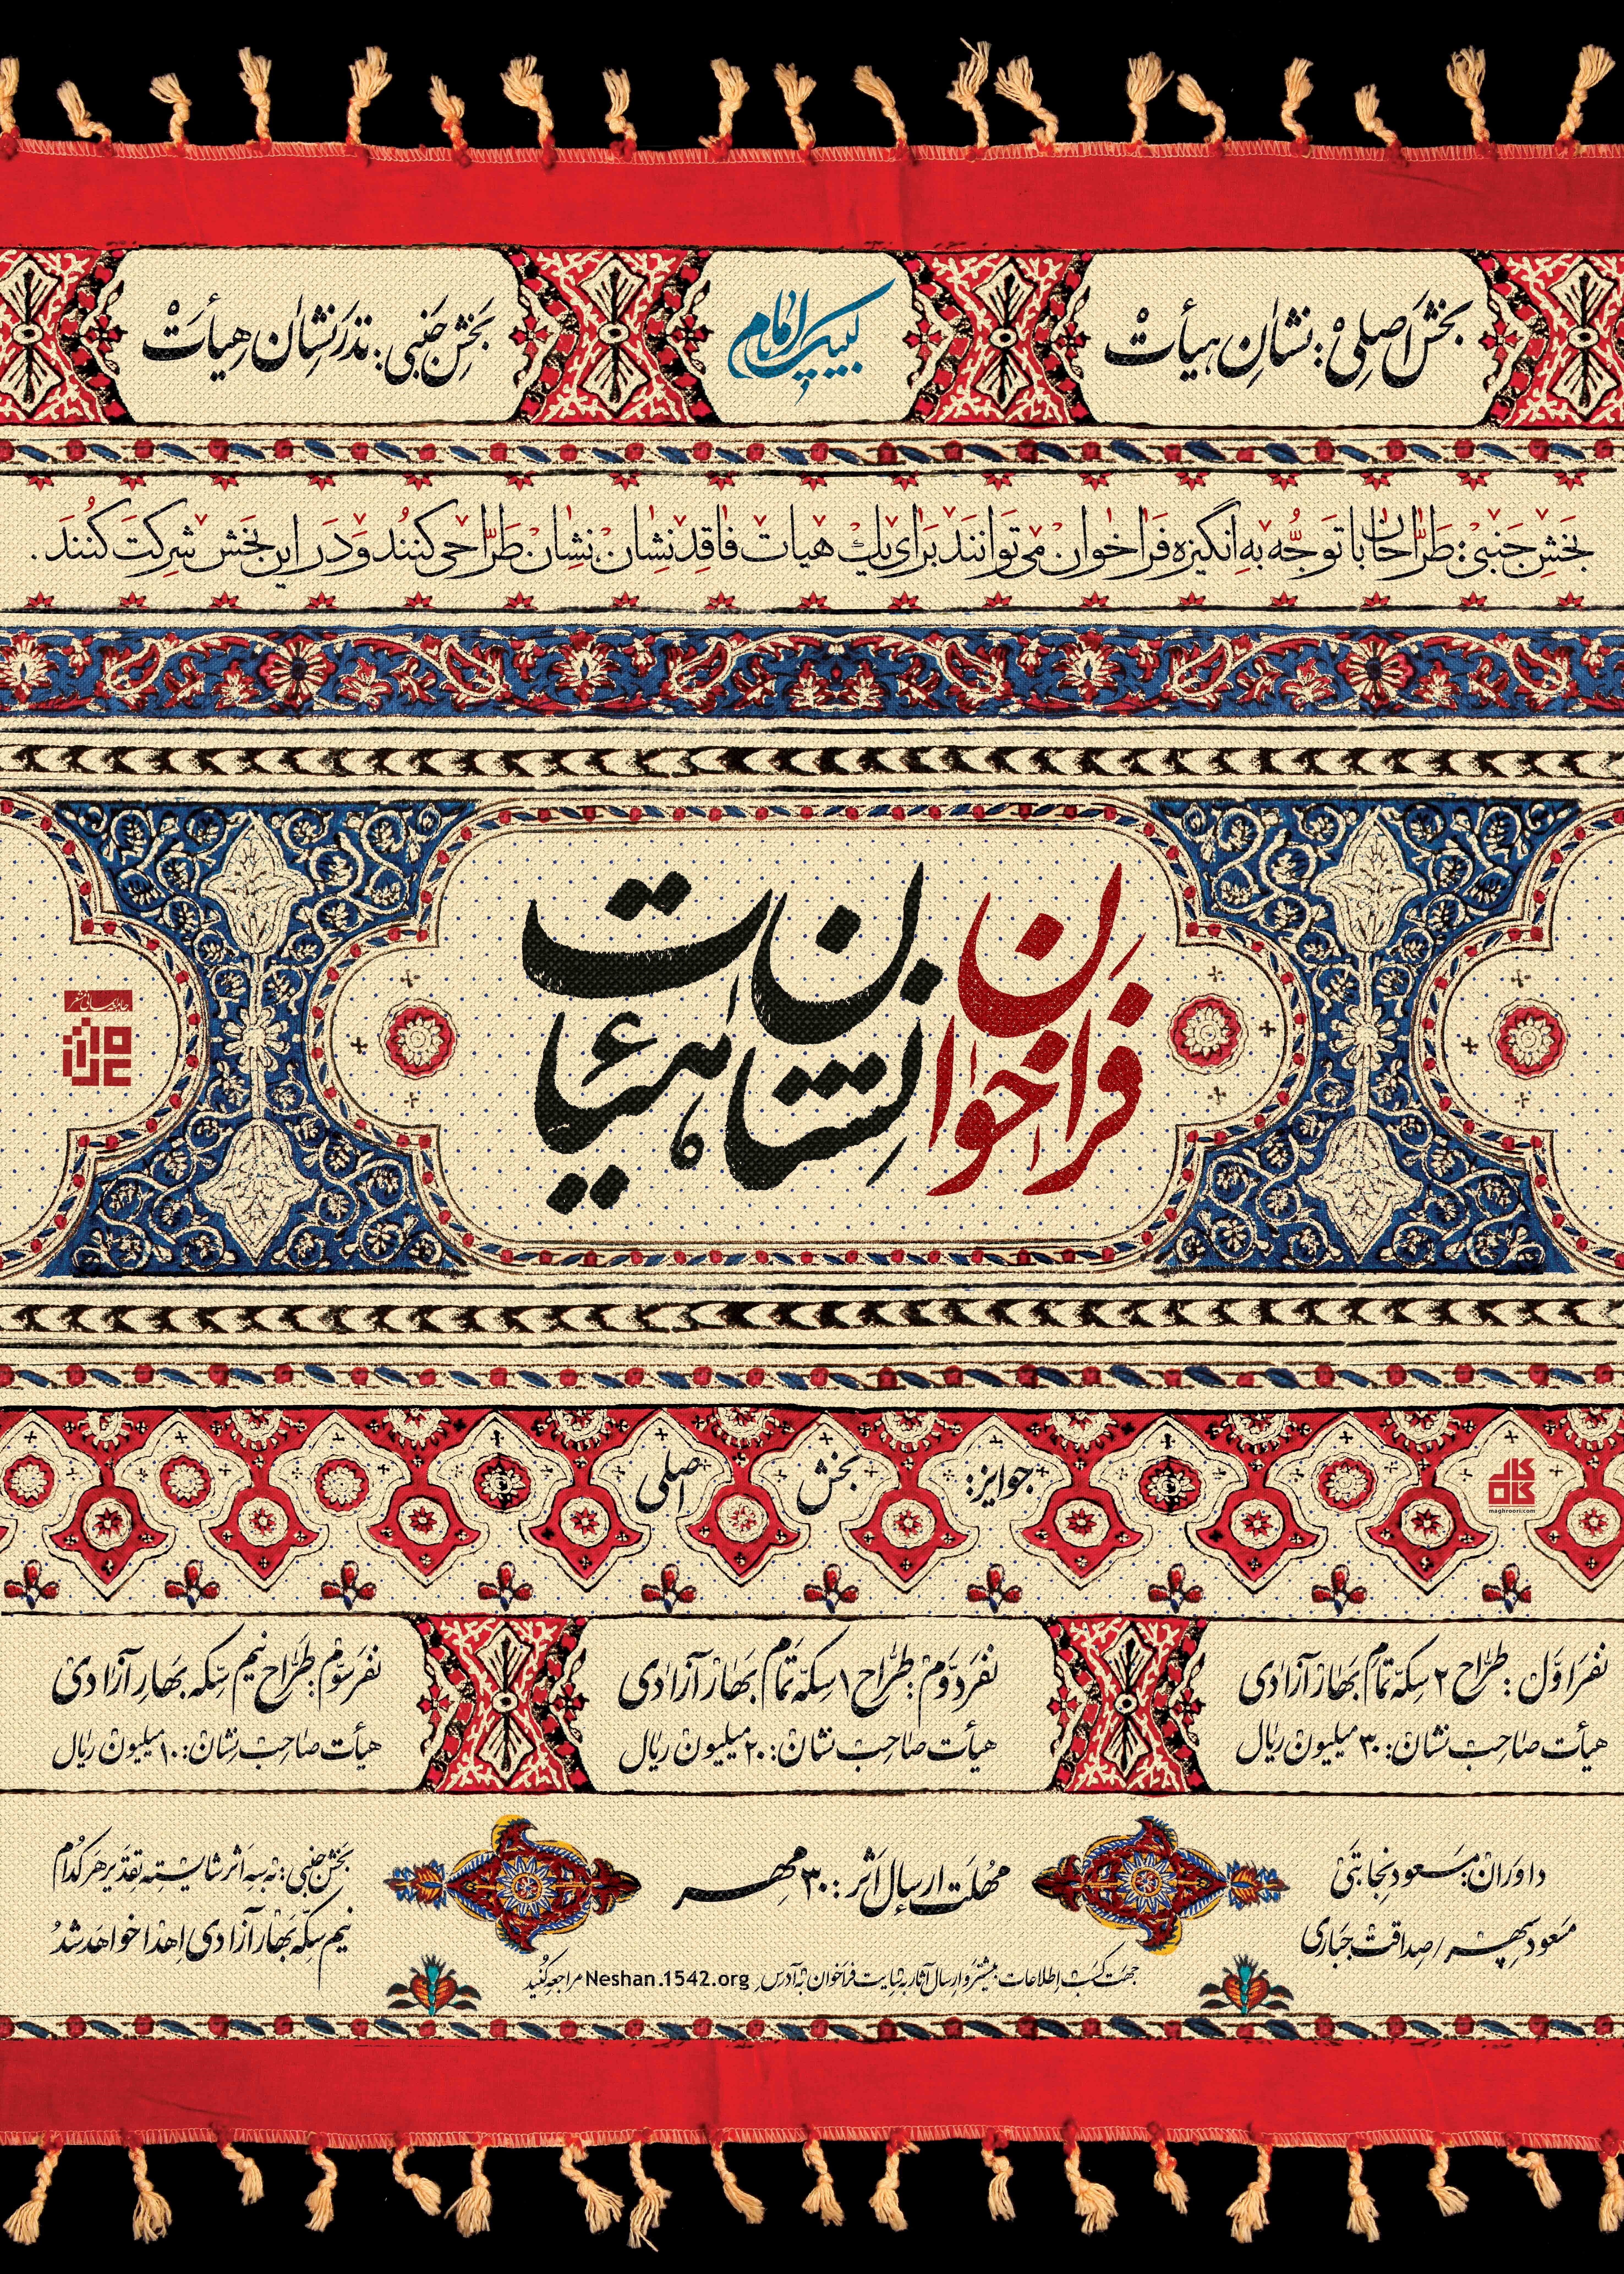 بخش اصلی: نشان هیأت
لبیک یا امام
بخش جنبی: نذر نشان هیأت
بخش جنبی: طراحان با توجه به انگیزه فراخوان می‌توانند برای یک هیات فاقد نشان، نشان طراحی کنند و در این بخش شرکت کنند.
فراخوان
نشان هیئات
جوایز:
بخش
اصلی
maghroori.com
نفر اول: طراح ۲ سکه تمام بهار آزادی
هیأت صاحب نشان: ۳۰ میلیون ریال
نفر دوم: طراح ۱ سکه تمام بهار آزادی
هیأت صاحب نشان: ۲۰ میلیون ریال
نفر سوم: طراح نیم سکه بهار آزادی
هیأت صاحب نشان: ۱۰ میلیون ریال
داوران: مسعود نجابتی
مسعود سپهر / صداقت جباری
مهلت ارسال اثر: ۳۰ مهر
بخش جنبی: به سه اثر شایسته تقدیر هر کدام
نیم سکه بهار آزادی اهدا خواهد شد
جهت کسب اطلاعات بیشتر و ارسال آثار به سایت فراخوان به آدرس Neshan.1542.org مراجعه کنید